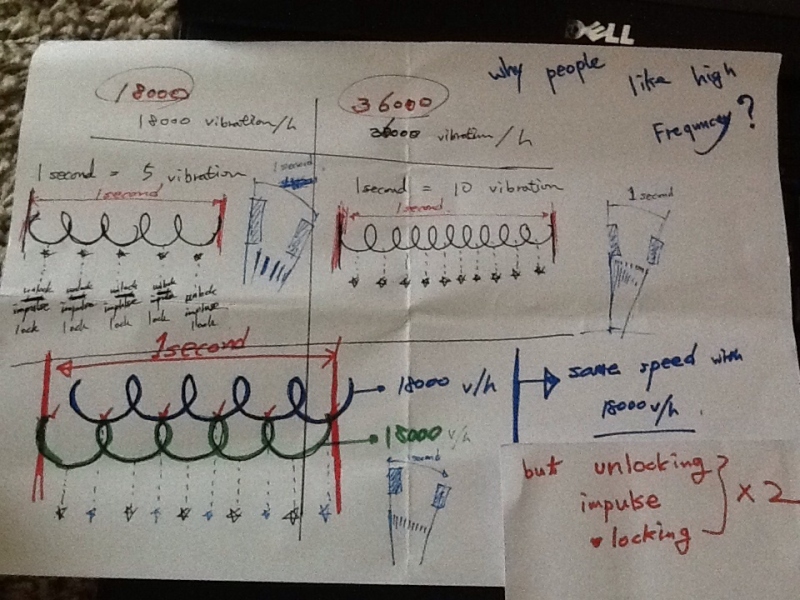 DELL
why people like high
Frequncey?
18000
18000 vibration/h
36000
36000 vibration/h
1 second = 5 vibration
1 second
1 second
1 second = 10 vibration
1 second
1 second
unlock unlock unlock unlock unlock
impulse impulse impulse impulse impulse
lock lock lock lock lock
1 second
18000 v/h
18000 v/h
1 second
same speed with
18000 v/h.
but unlocking
impulse
locking
x 2